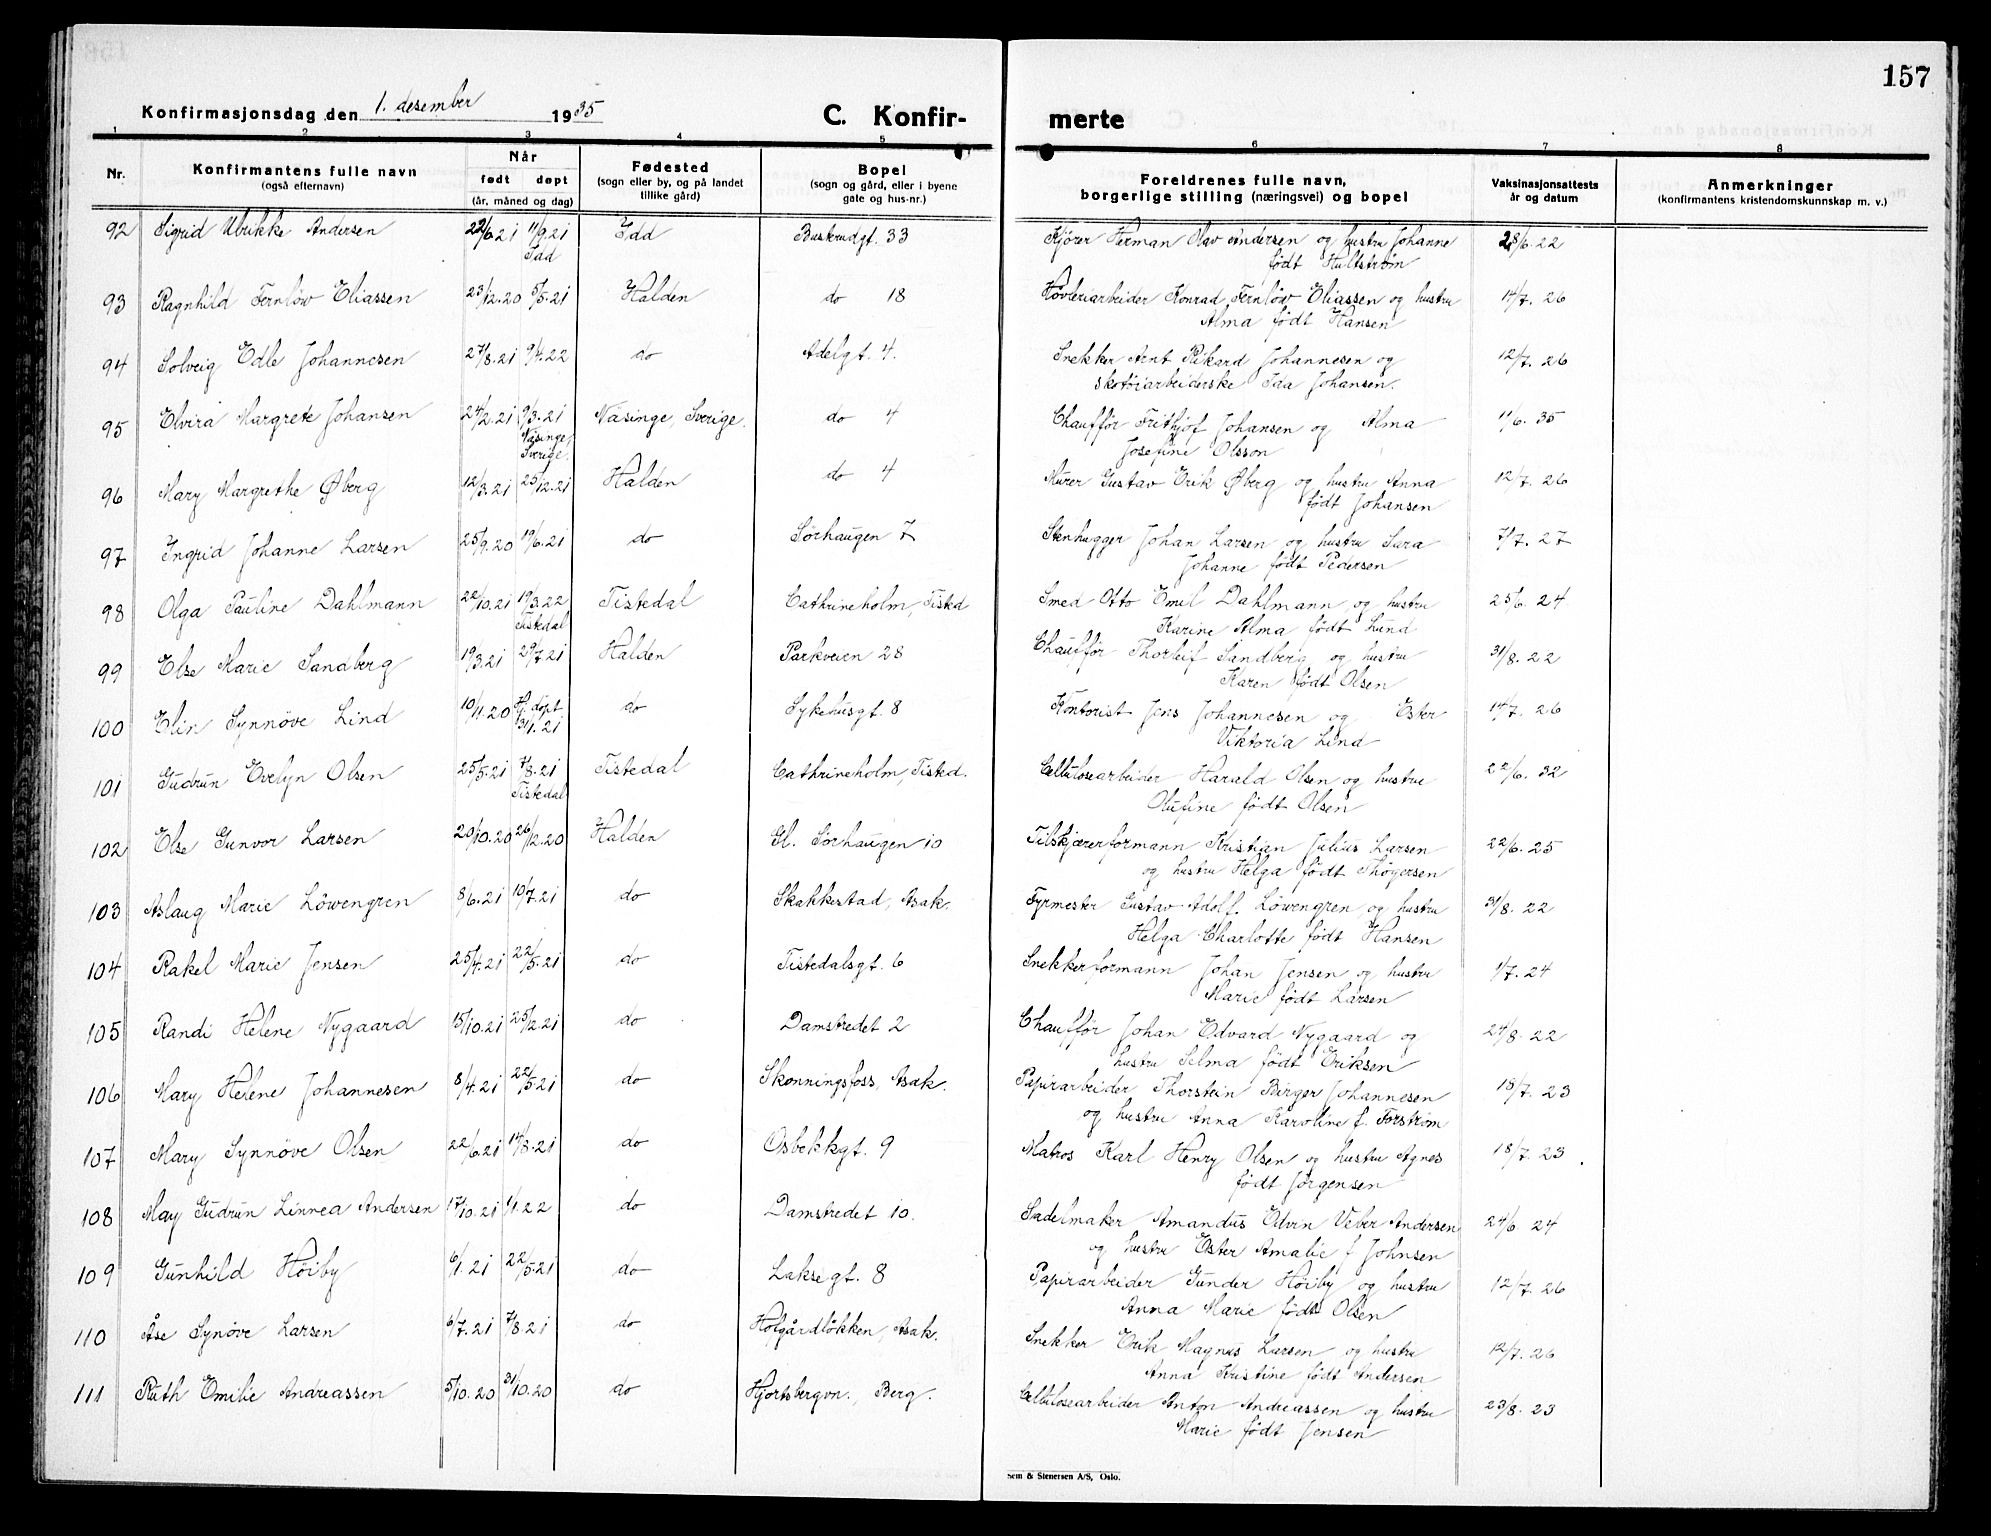 157
Konfirmasjonsdag den 1. desember 1935 C. Konfir- merte
1 2 3 4 5 6 7 8
Nr. Konfirmantens fulle navn (også efternavn) Når født døpt (år, måned og dag) Fødested (sogn eller by, og på landet tillike gård) Bopel (sogn og gård, eller i byene gate og hus-nr.) Foreldrenes fulle navn, borgerlige stilling (næringsvei) og bopel Vaksinasjonsattests år og datum Anmerkninger (konfirmantens kristendomskunnskap m. v.)
92 Sigrid Ulrikke Andersen 22/6.21 11/9.21 Idd Buskrudgt. 33 Kjører Herman Olav Andersen og hustru Johanne 28/6.22
Idd født Hultstrøm
93 Ragnhild Fernløw Eliassen 23/12.20 5/5.21 Halden do 18 Høvleriarbeider Konrad Fernløw Eliassen og hustru 14/7.26
Alma født Hansen
94 Solveig Edle Johannesen 27/8.21 9/4.22 do Adelgt. 4. Snekker Arnt Rikard Johannesen og 12/7.26
skotøiarbeiderske Ida Johansen.
95 Elvira Margrete Johansen 24/2.21 9/3.21 Näsinge, Sverige. do 4 Chauffør Frithjof Johansen og Alma 11/6.35
Näsinge, Sverige. Josefine Olsson
96 Mary Margrethe Øberg 12/3.21 25/12.21 Halden do 4 Murer Gustav Erik Øberg og hustru Anna 12/7.26
født Johansen
97 Ingrid Johanne Larsen 25/9.20 19/6.21 do Sørhaugen 7 Stenhugger Johan Larsen og hustru Sara 7/7.27
Johanne født Pedersen
98 Olga Pauline Dahlmann 22/10.21 19/3.22 Tistedal Cathrineholm, Tisted Smed Otto Emil Dahlmann og hustru 25/6.24
Tistedal Karine Alma født Lund
99 Else Marie Sandberg 19/3.21 29/7.21 Halden Parkveien 28 Chauffør Thorleif Sandberg og hustru 31/8.22
Karen født Olsen
100 Elin Synnöve Lind 10/11.20 Hj. döpt do Sykehusgt. 8 Kontorist Jens Johannesen og Ester 14/7.26
31/1.21 Viktoria Lind
101 Gudrun Evelyn Olsen 25/5.21 7/8.21 Tistedal Cathrineholm, Tisted. Cellulosearbeider Harald Olsen og hustru 22/6.32
Tistedal Olufine født Olsen
102 Else Gunvor Larsen 20/10.20 26/12.20 Halden Gl. Sørhaugen 10 Tilskjærerformann Kristian Julius Larsen 22/6.25
og hustru Helga født Thøgersen
103 Aslaug Marie Löwengren 8/6.21 10/7.21 do Skakkestad, Asak. Fyrmester Gustav Adolf Löwengren og hustru 31/8.22
Helga Charlotte født Hansen
104 Rakel Marie Jensen 25/4.21 22/5.21 do Tistedalsgt. 6 Snekkerformann Johan Jensen og hustru 1/7.24
Marie født Larsen
105 Randi Helene Nygaard 15/10.21 25/12.21 do Damstredet 2 Chauffør Johan Edvard Nygaard og 24/8.22
hustru Selma født Eriksen
106 Mary Helene Johannesen 8/4.21 22/5.21 do Skonningsfoss, Asak. Papirarbeider Thorstein Birger Johannesen 18/7.23
og hustru Anna Karoline f. Forstrøm
107 Mary Synnöve Olsen 22/6.21 14/8.21 do Osbekkgt. 9 Matros Karl Henry Olsen og hustru Agnes 18/7.23
født Jørgensen
108 May Gudrun Linnea Andersen 17/10.21 1/1.22 do Damstredet 10. Sadelmaker Amandus Edvin Veber Andersen 24/6.24
og hustru Ester Amalie f Johnsen
109 Gunhild Höiby 6/1.21 22/5.21 do Laksegt. 8 Papirarbeider Gunder Höiby og hustru 12/7.26
Anna Marie født Olsen
110 Åse Synöve Larsen 6/7.21 7/8.21 do Hofgårdløkken, Asak. Snekker Erik Magnus Larsen og hustru 12/7.26
Anna Kristine født Andersen
111 Ruth Emilie Andreassen 5/10.20 31/10.20 do Hjortsbergvn., Berg. Cellulosearbeider Anton Andreassen og hustru 23/8.23
Marie født Jensen
Sem & Stenersen A/S, Oslo.